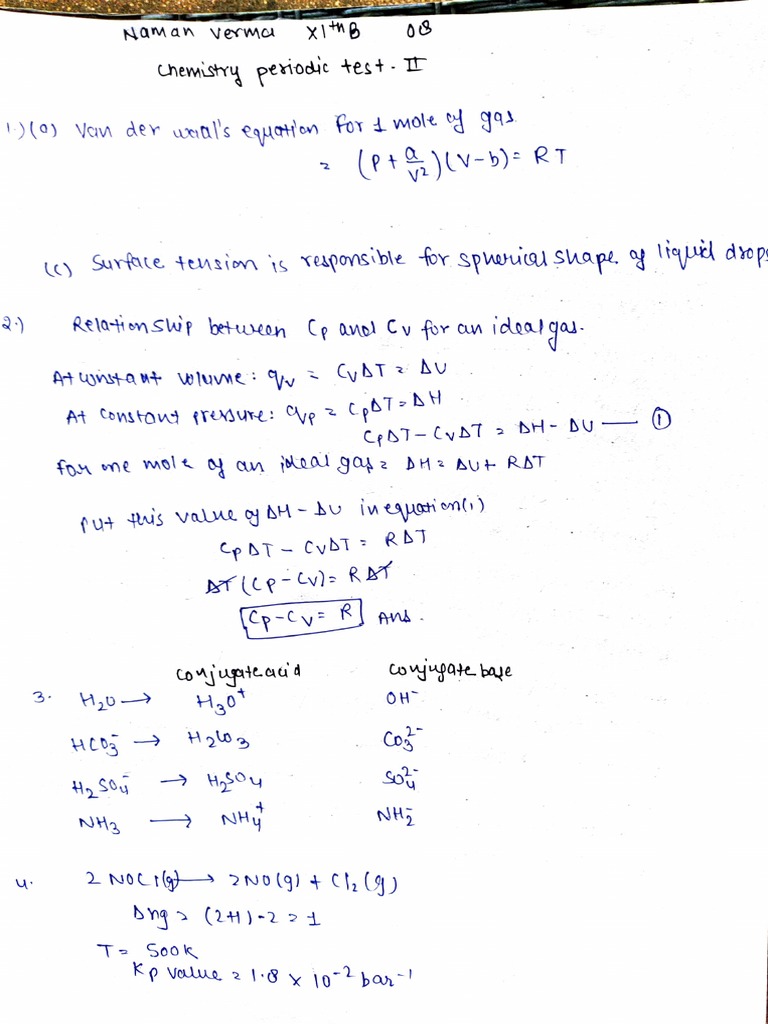 Naman Verma XIth B 08
Chemistry periodic test - II
1.) (a) Van der waal's equation For 1 mole of gas
= (P + a/V²) (V - b) = RT
(c) Surface tension is responsible for spherical shape of liquid drops
2.) Relationship between Cp and Cv for an ideal gas.
At constant volume: qv = CvΔT = ΔU
At constant pressure: qp = CpΔT = ΔH
CpΔT - CvΔT = ΔH - ΔU — ①
for one mole of an ideal gas = ΔH = ΔU + RΔT
put this value of ΔH - ΔU in equation (1)
CpΔT - CvΔT = RΔT
ΔT (Cp - Cv) = RΔT
Cp - Cv = R Ans.
conjugate acid conjugate base
3. H₂O → H₃O⁺ OH⁻
HCO₃⁻ → H₂CO₃ CO₃²⁻
H₂SO₄⁻ → H₂SO₄ SO₄²⁻
NH₃ → NH₄⁺ NH₂⁻
4. 2 NOCl(g) → 2NO(g) + Cl₂(g)
Δng = (2+1) - 2 = 1
T = 500K
Kp value = 1.8 × 10⁻² bar⁻¹